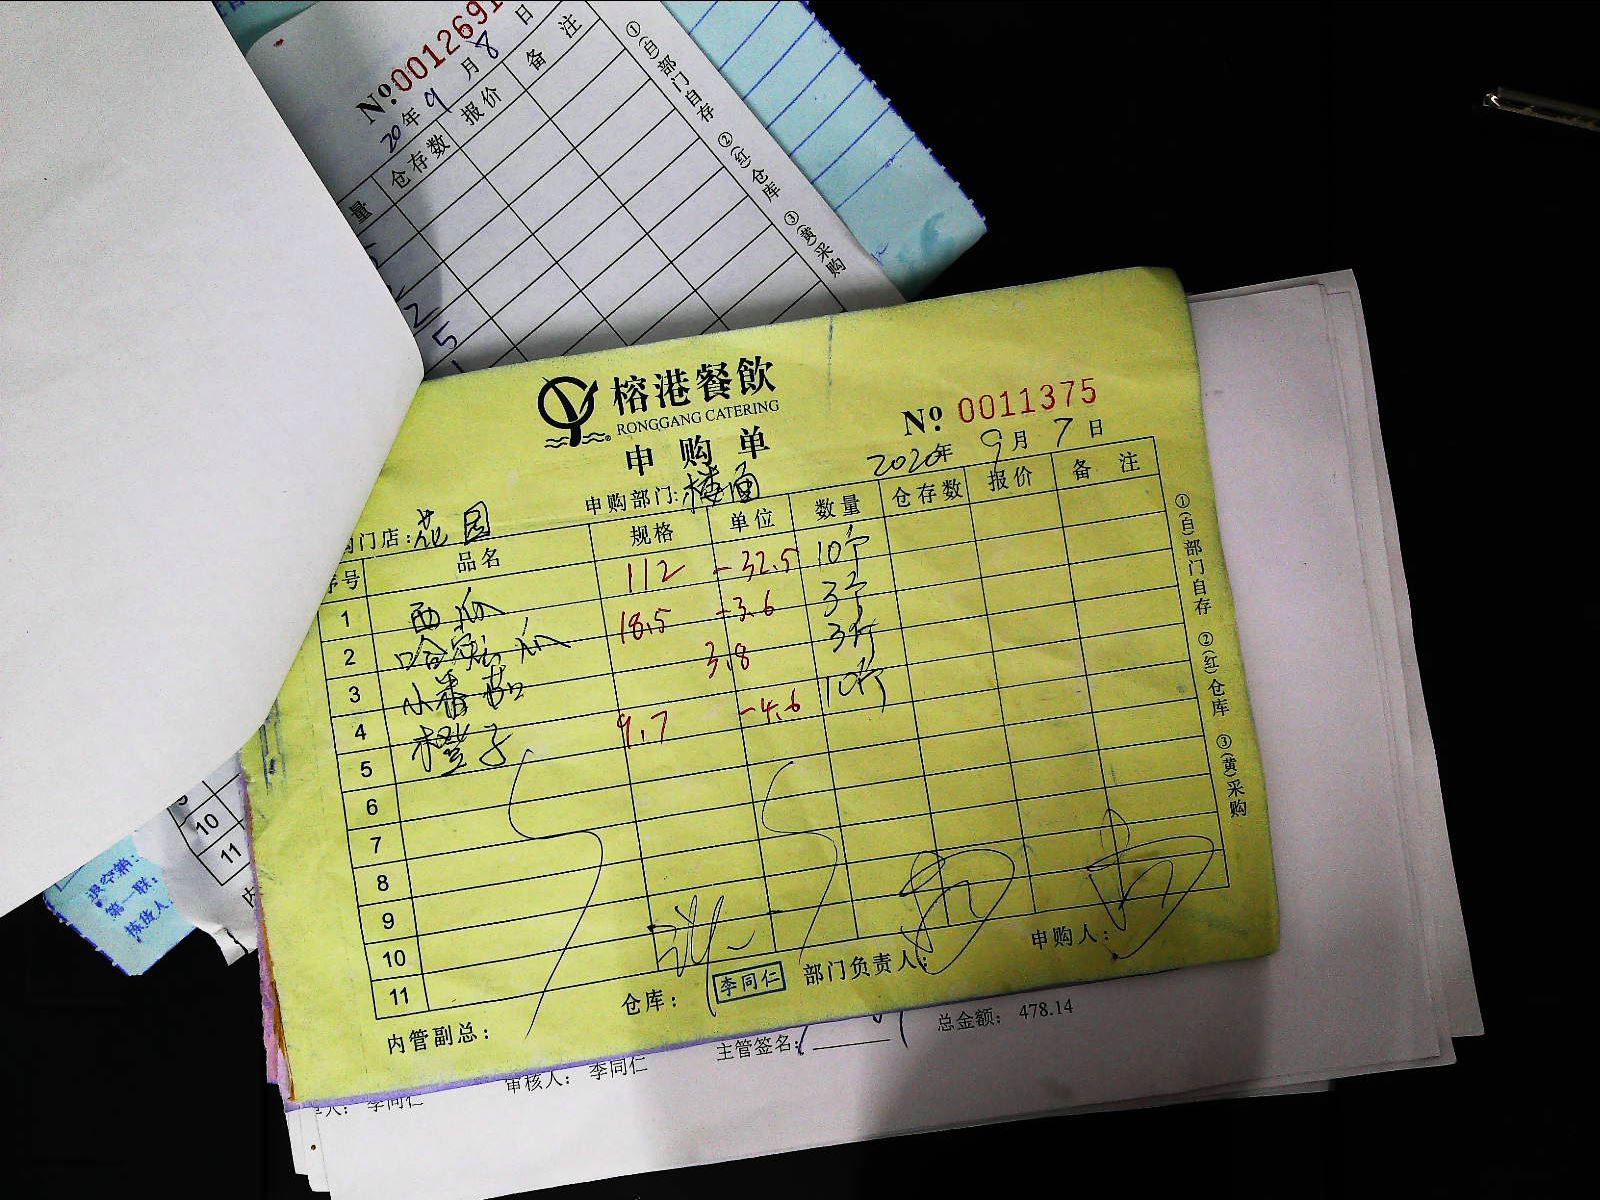 №0012691
20年9月8日
量 仓存数 报价 备注
2
5
①(白)部门自存 ②(红)仓库 ③(黄)采购
榕港餐飲
RONGGANG CATERING
申购单
№ 0011375
2020年9月7日
购门店:花园 申购部门:楼面
序号 品名 规格 单位 数量 仓存数 报价 备注
1 西瓜 112 -32.5 10个
2 哈密瓜 18.5 -3.6 3个
3 小番茄 3.8 3斤
4 橙子 9.7 -4.6 10斤
5
6
7
8
9
10
11
①(白)部门自存 ②(红)仓库 ③(黄)采购
内管副总: 仓库: 李同仁 部门负责人: 申购人:
10
11
内
退空箱:
第一联:
拣货人
审核人: 李同仁 主管签名: 总金额: 478.14
李同仁